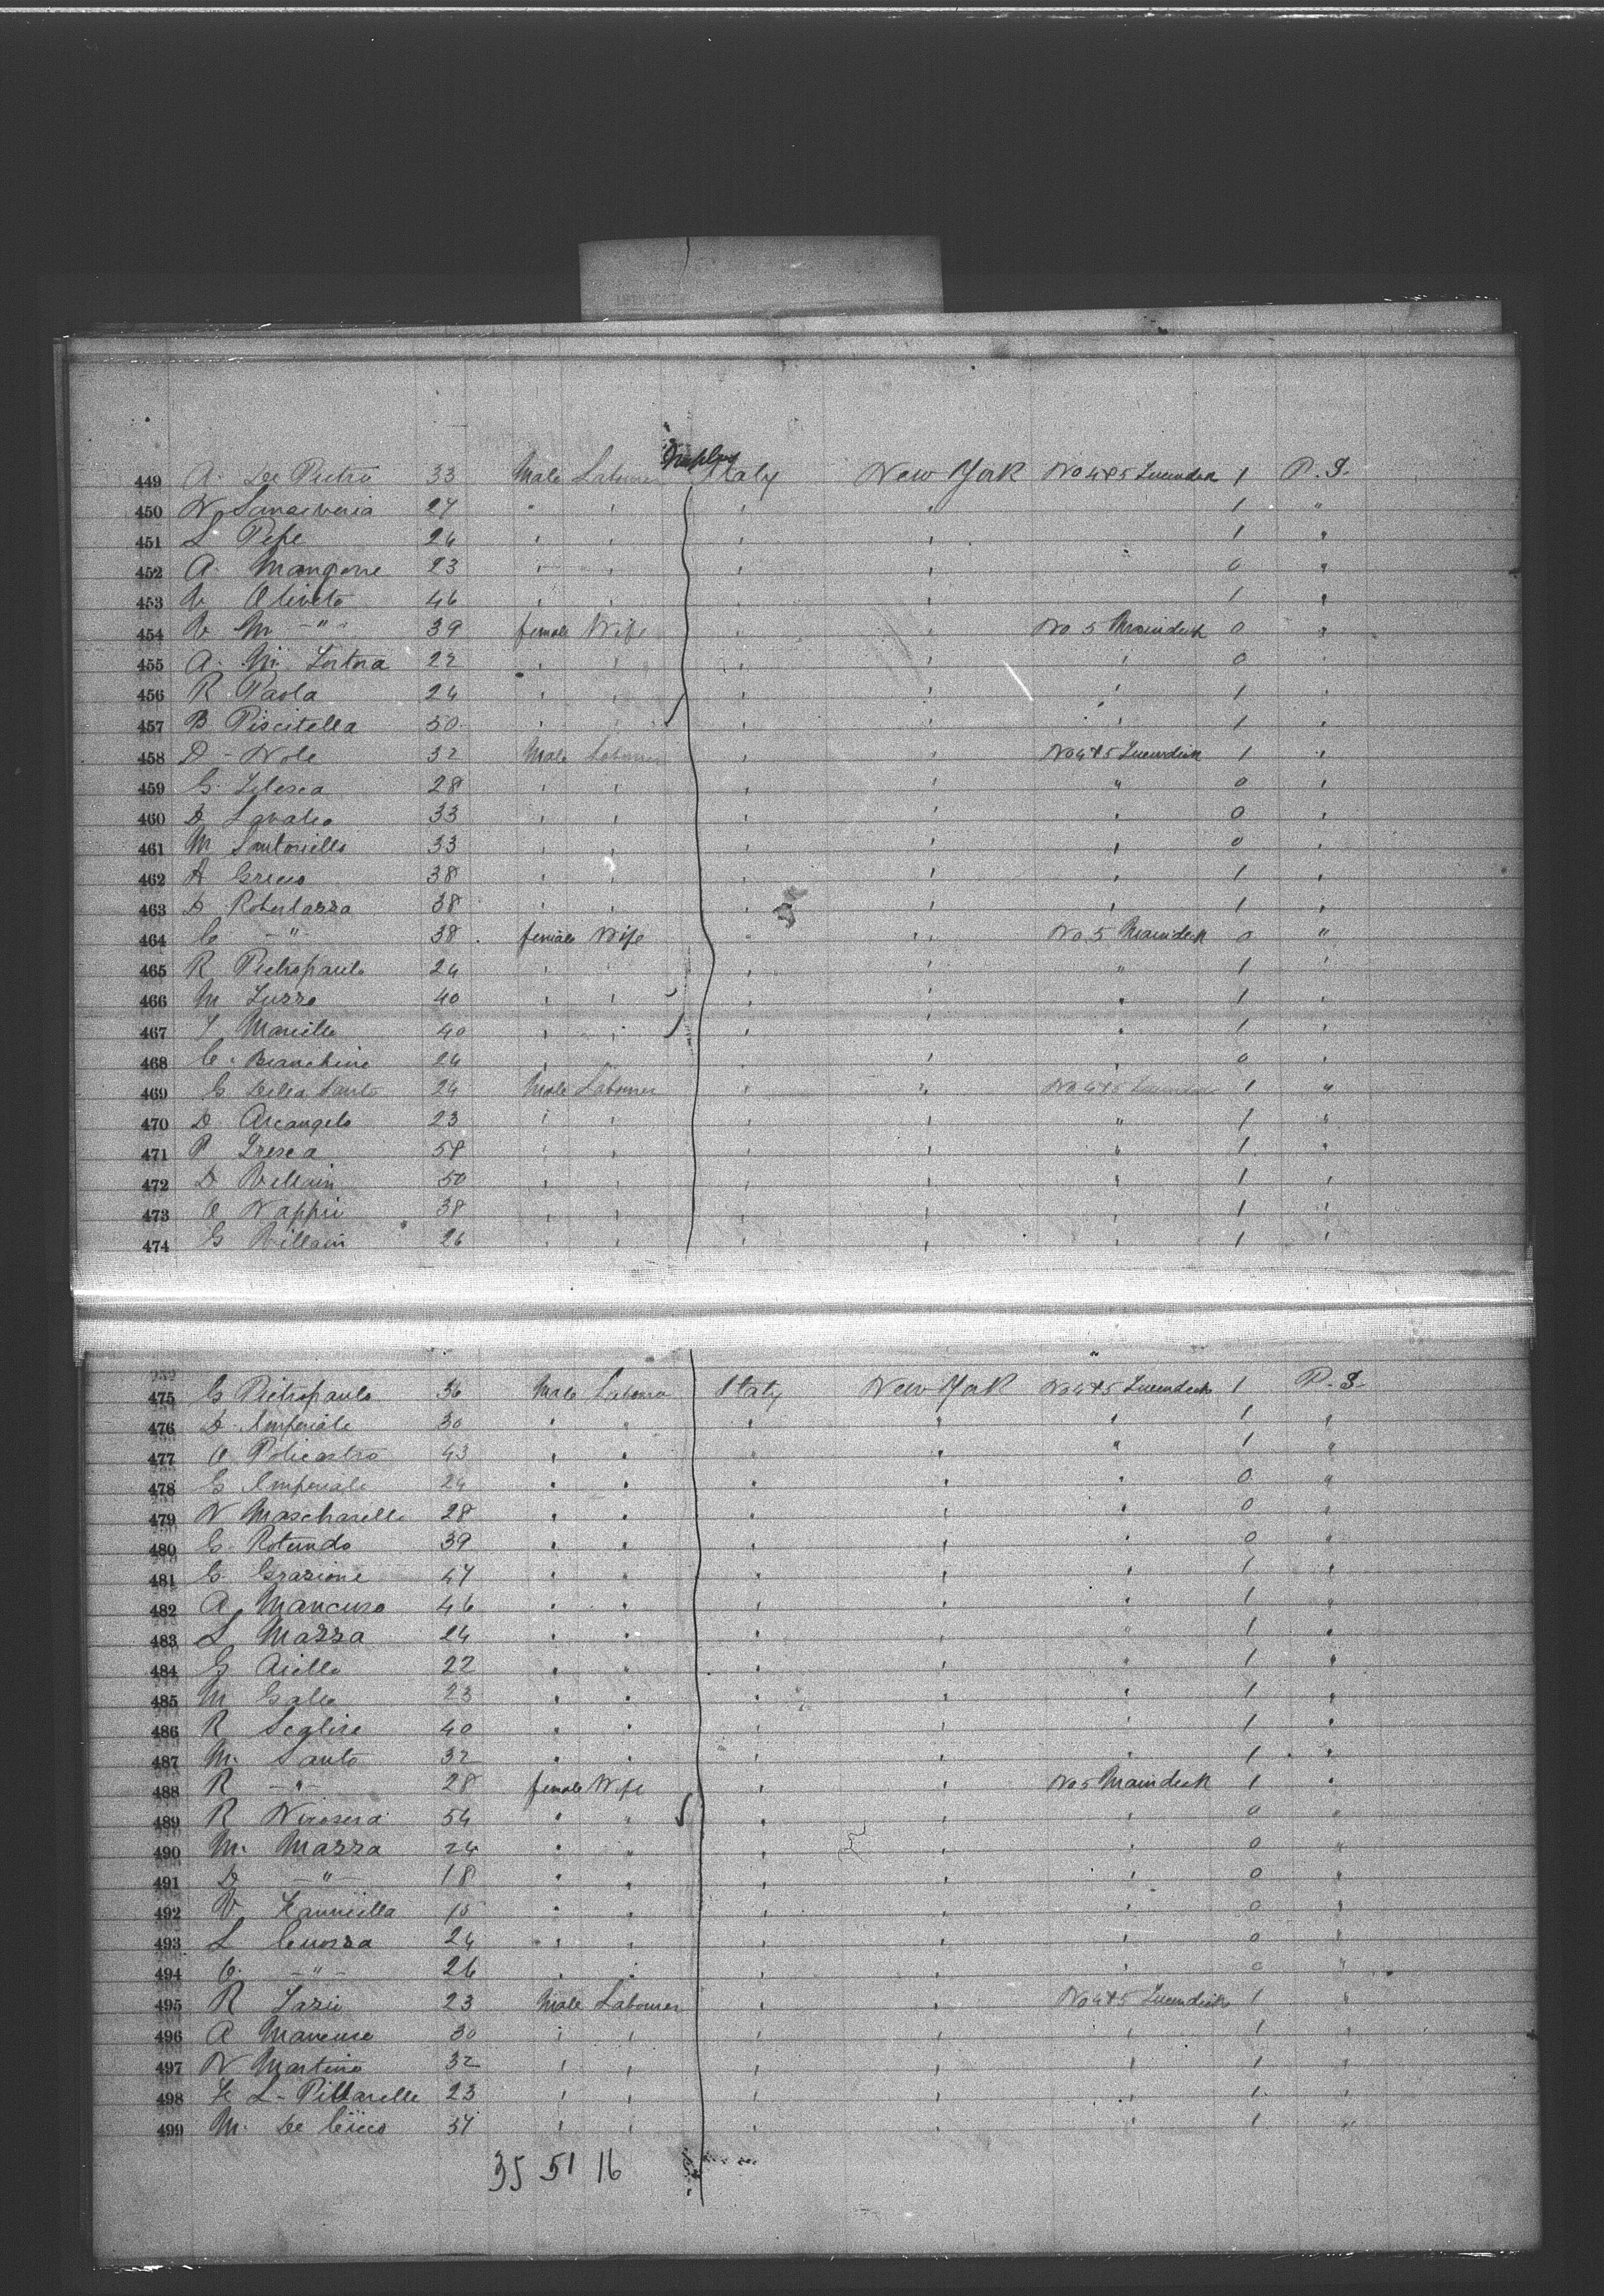 Naples
449 A. De Pietro 33 Male Labourer Italy New York No 4&5 Tweendeck 1 P. S.
450 N Sanseveria 27 " " " " 1 "
451 L Pepe 26 " " " " 1 "
452 A. Mangone 23 " " " " 0 "
453 V Oliveto 46 " " " " 1 "
454 V M — " — 39 female Wife " " No 5 Maindeck 0 "
455 A. M. Tortora 22 " " " " " 0 "
456 R Paola 24 " " " " " 1 "
457 B Piscitella 50 " " " " " 1 "
458 D - Nole 32 Male Labourer " " No 4&5 Tweendeck 1 "
459 G. Telesca 28 " " " " " 0 "
460 D 33 " " " " " 0 "
461 M Santoriello 33 " " " " " 0 "
462 A Greco 38 " " " " " 1 "
463 D Robertazza 38 " " " " " 1 "
464 C — " — 38 female Wife " " No 5 Maindeck 0 "
465 R Pietropaulo 24 " " " " " 1 "
466 M Tuzzo 40 " " " " " 1 "
467 40 " " " " " 1 "
468 C. Bianchine 24 " " " " " 0 "
469 G Della Santo 24 Male Labourer " " No 4&5 Tweendeck 1 "
470 D Arcangelo 23 " " " " " 1 "
471 P Tresca 58 " " " " " 1 "
472 D Villain 50 " " " " " 1 "
473 C Nappii 38 " " " " " 1 "
474 G Villain 26 " " " " " 1 "
475 G Pietropaulo 36 Male Labourer Italy New York No 4&5 Tweendeck 1 P. S.
476 D. Imperiale 30 " " " " " 1 "
477 C Policastro 43 " " " " " 1 "
478 G Imperiale 24 " " " " " 0 "
479 N Mascharelle 28 " " " " " 0 "
480 G. Rotundo 39 " " " " " 0 "
481 G. Grazione 47 " " " " " 1 "
482 A Mancuso 46 " " " " " 1 "
483 L Mazza 24 " " " " " 1 "
484 G Aiello 22 " " " " " 1 "
485 M Galeo 23 " " " " " 1 "
486 R Scalise 40 " " " " " 1 "
487 M. Santo 32 " " " " " 1 "
488 R — " — 28 female Wife " " No 5 Maindeck 1 "
489 R 54 " " " " " 0 "
490 M. Mazza 24 " " " " " 0 "
491 D — " — 18 " " " " " 0 "
492 V Zanniella 15 " " " " " 0 "
493 L Cuozza 24 " " " " " 0 "
494 C. — " — 26 " " " " " 0 "
495 R Tazii 23 Male Labourer " " No 4&5 Tweendeck 1 "
496 A Mancuso 30 " " " " " 1 "
497 N Martino 32 " " " " " 1 "
498 F. L - Pittarelle 23 " " " " " 1 "
499 M. De Cicco 37 " " " " " 1 "
35 51 16